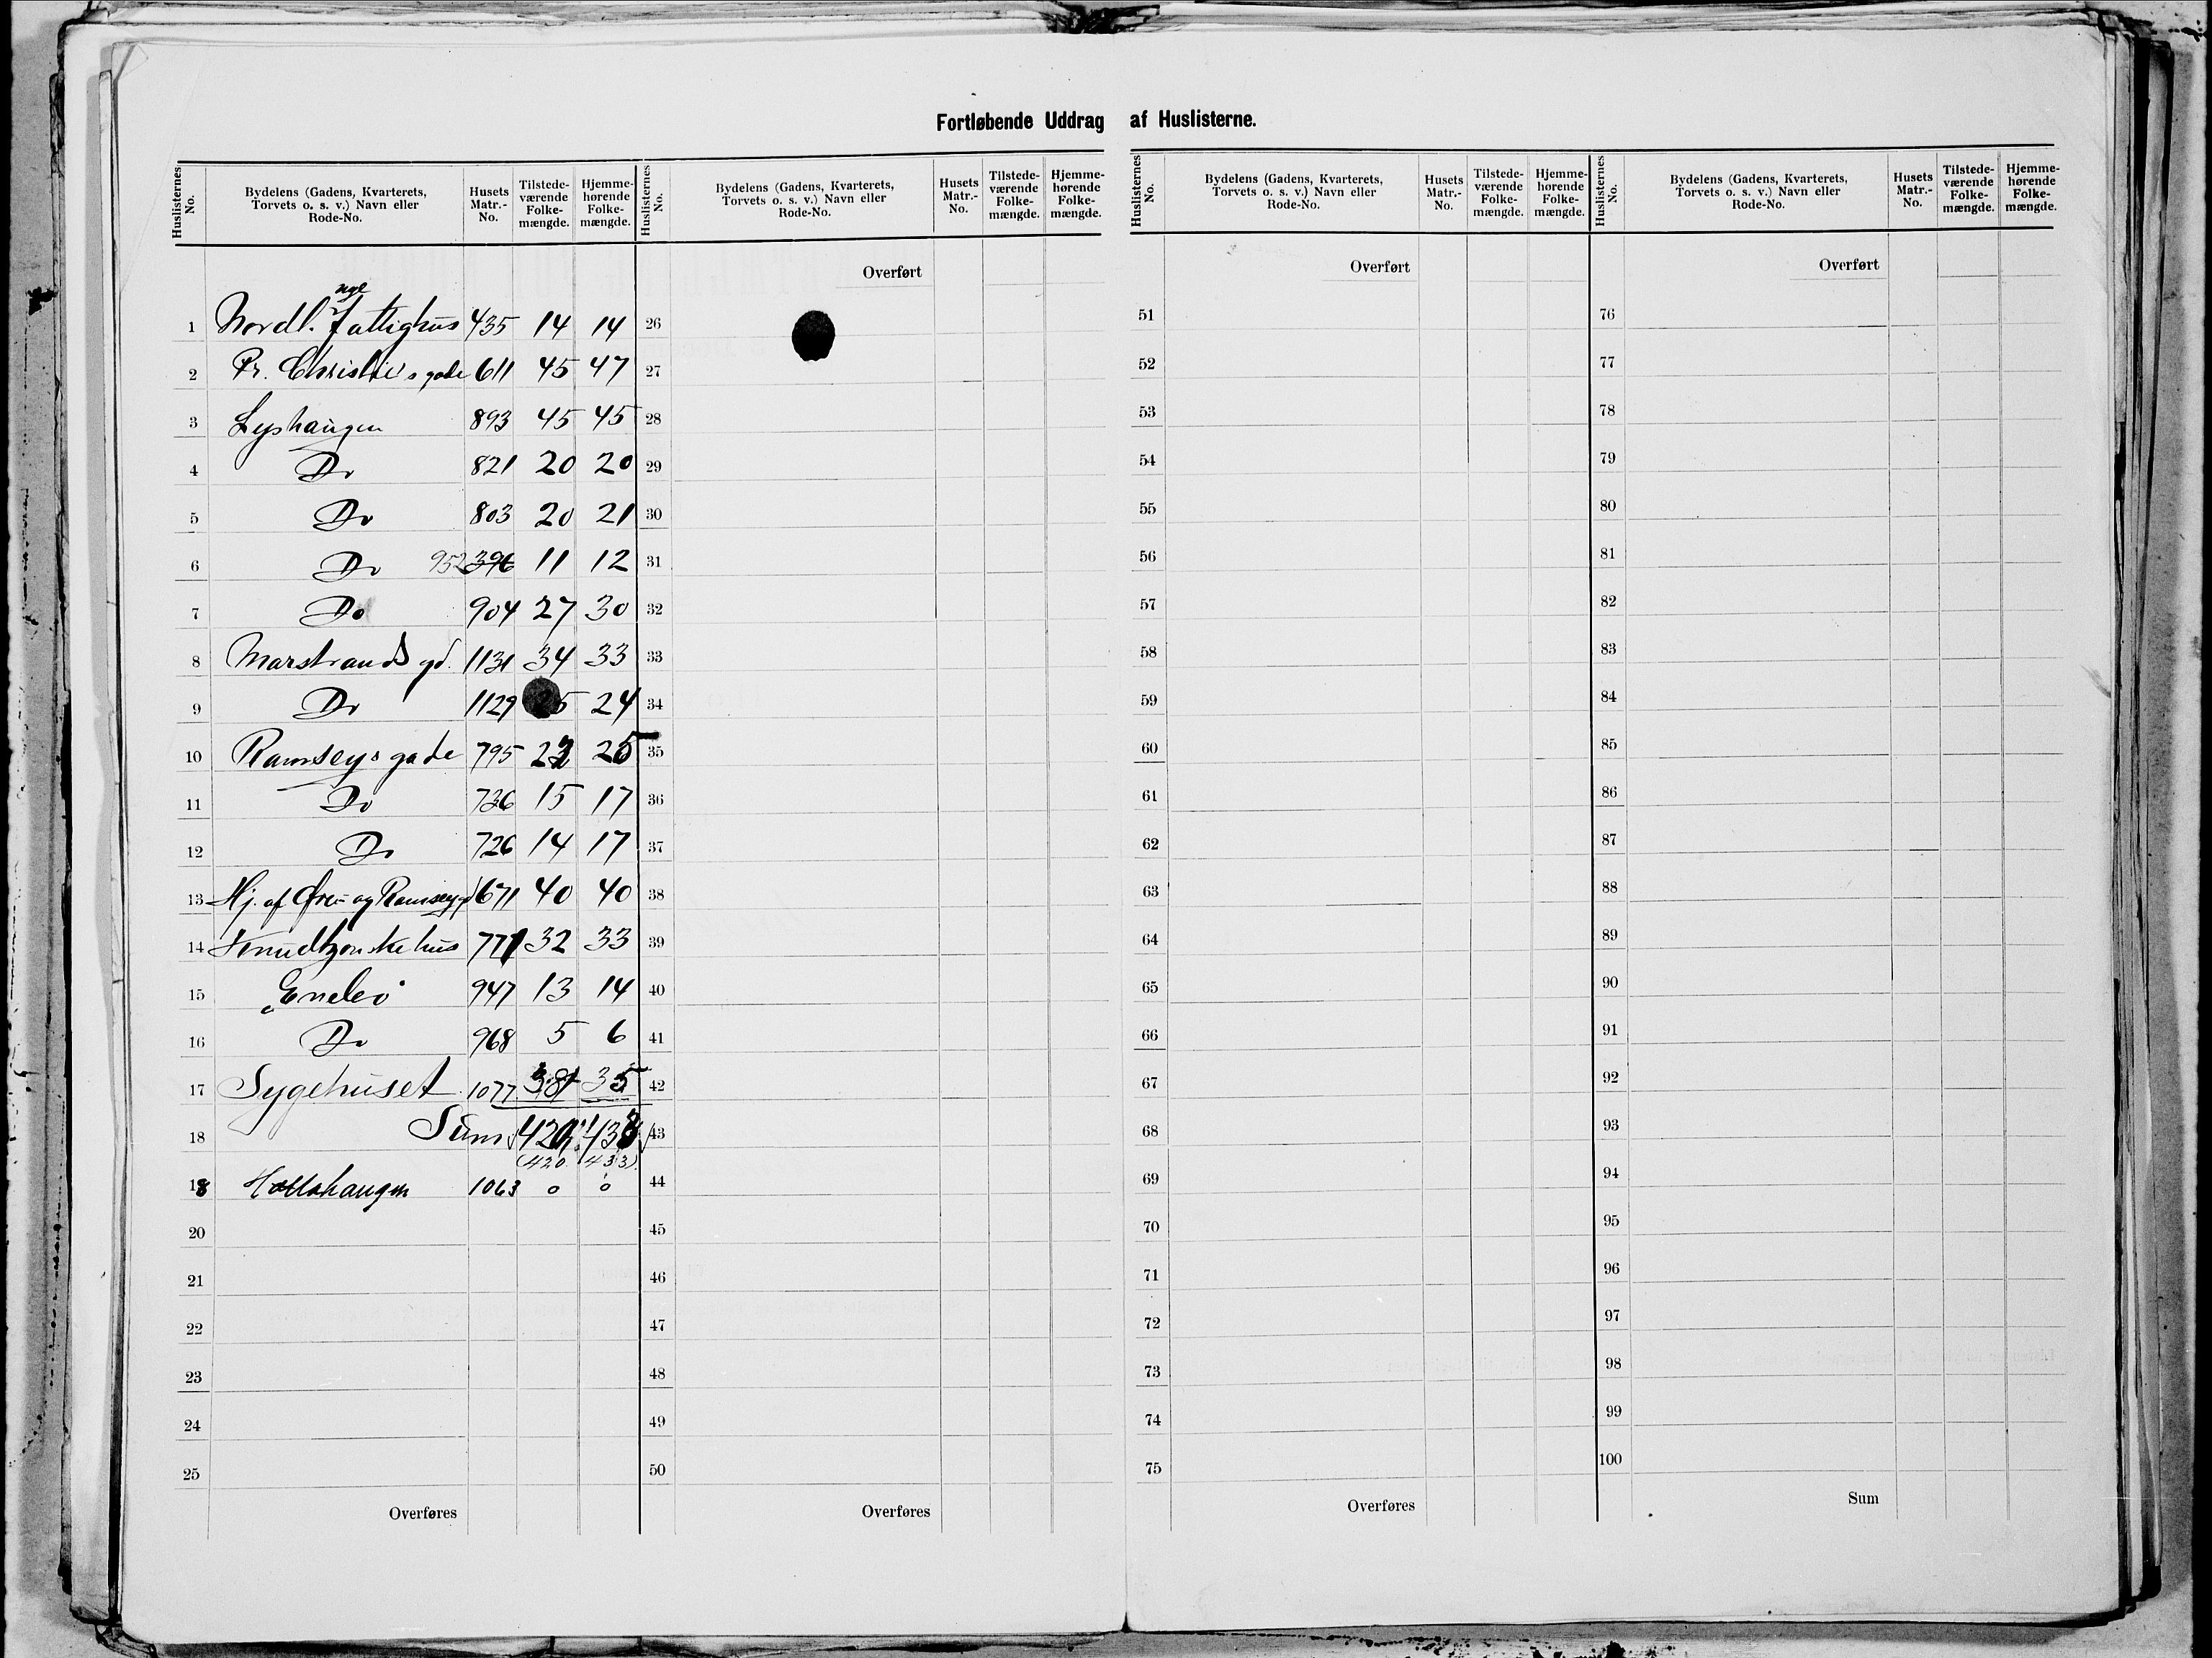 Fortløbende Uddrag af Huslisterne.
Huslisternes No. Bydelens (Gadens, Kvarterets, Torvets o. s. v.) Navn eller Rode-No. Husets Matr.-No. Tilstedeværende Folkemængde. Hjemmehørende Folkemængde.
Huslisternes No. Bydelens (Gadens, Kvarterets, Torvets o. s. v.) Navn eller Rode-No. Husets Matr.-No. Tilstedeværende Folkemængde. Hjemmehørende Folkemængde.
Huslisternes No. Bydelens (Gadens, Kvarterets, Torvets o. s. v.) Navn eller Rode-No. Husets Matr.-No. Tilstedeværende Folkemængde. Hjemmehørende Folkemængde.
Huslisternes No. Bydelens (Gadens, Kvarterets, Torvets o. s. v.) Navn eller Rode-No. Husets Matr.-No. Tilstedeværende Folkemængde. Hjemmehørende Folkemængde.
Overført Overført Overført
nye
1 Nordl. Fattighus 435 14 14 26 51 76
2 Pr. Christie's gade 611 45 47 27 52 77
3 Lyshaugen 893 45 45 28 53 78
4 Do 821 20 20 29 54 79
5 Do 803 20 21 30 55 80
6 Do 952 396 11 12 31 56 81
7 Do 904 27 30 32 57 82
8 Marstrands gd. 1131 34 33 33 58 83
9 Do 1129 5 24 34 59 84
10 Ramseys gade 795 25 35 60 85
11 Do 736 15 17 36 61 86
12 Do 726 14 17 37 62 87
13 Hj. af Øvre- og Ramseygd 671 40 40 38 63 88
14 Knudtzonske hus 771 32 33 39 64 89
15 "Enelev" 947 13 14 40 65 90
16 Do 968 5 6 41 66 91
17 Sygehuset 1077 35 42 67 92
18 Sum 43 68 93
(420 433)
18 1063 0 0 44 69 94
20 45 70 95
21 46 71 96
22 47 72 97
23 48 73 98
24 49 74 99
25 50 75 100
Overføres Overføres Overføres Sum